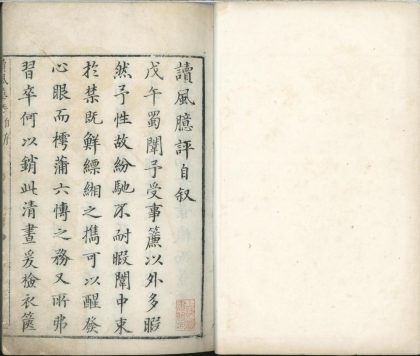 讀風臆評自叙
戊午蜀闈予受事簾以外多暇
然予性故紛馳不耐暇闈中束
於禁既鮮縹緗之攜可以醒發
心眼而樗蒲六愽之務又所弗
習卒何以銷此清晝爰檢衣篋